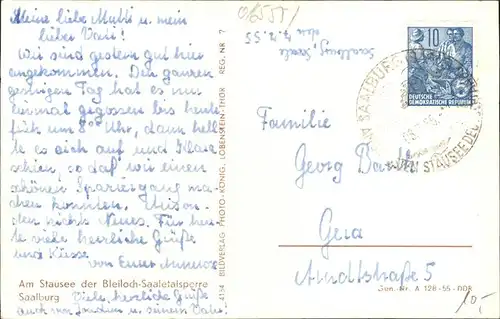 Meine liebe Mutti u. mein
lieber Vati!
Wir sind gestern gut hier
angekommen. Den ganzen
gestrigen Tag hat es nur
einmal gegossen bis heute
früh um 8 Uhr, dann hell-
te es sich auf und
schien, so daß wir einen
schönen Spaziergang ma-
chen konnten. 
den nichts Neues. Für heu-
te viele herzliche Grüße
und Küsse
von Eurer
Am Stausee der Bleiloch-Saaletalsperre
Saalburg
Viele herzliche Grüße
auch von u. seinem Vati!
4134 BILDVERLAG PHOTO-KÖNIG, LOBENSTEIN-THÜR. REG. NR. 7
Saalburg, Saale
55
10
DEUTSCHE
DEMOKRATISCHE REPUBLIK
SAALBURG (THÜR)
STAUSEE DER
Familie
Georg
Gera
Arndtstraße 5
Gen.-Nr. A 128-55-DDR
10,-